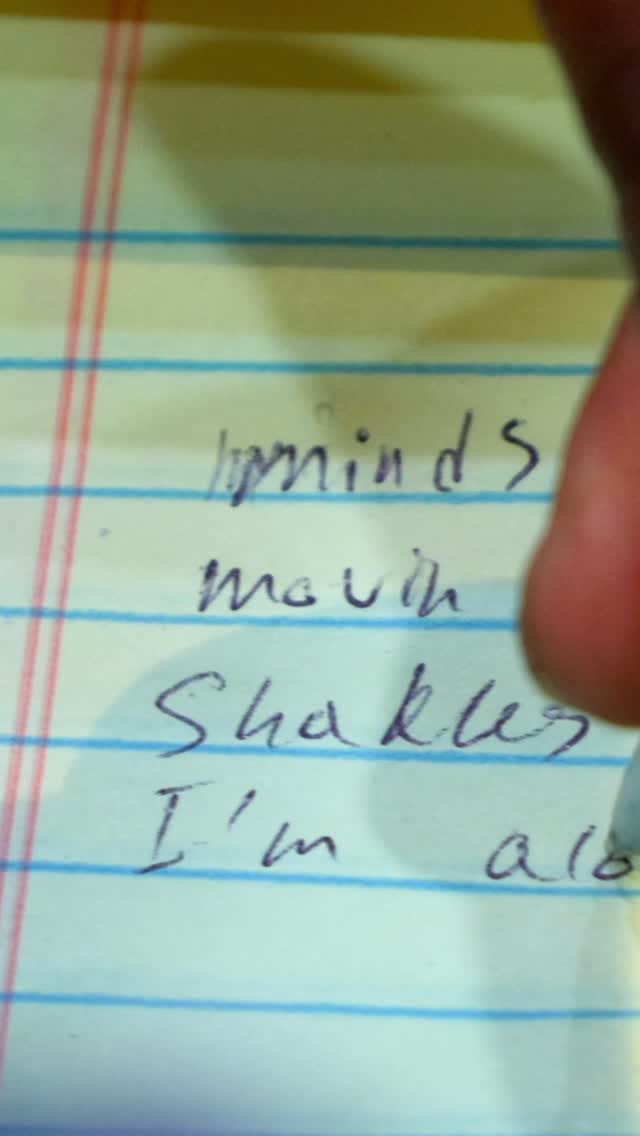 minds
movin
Shakles
I'm alo